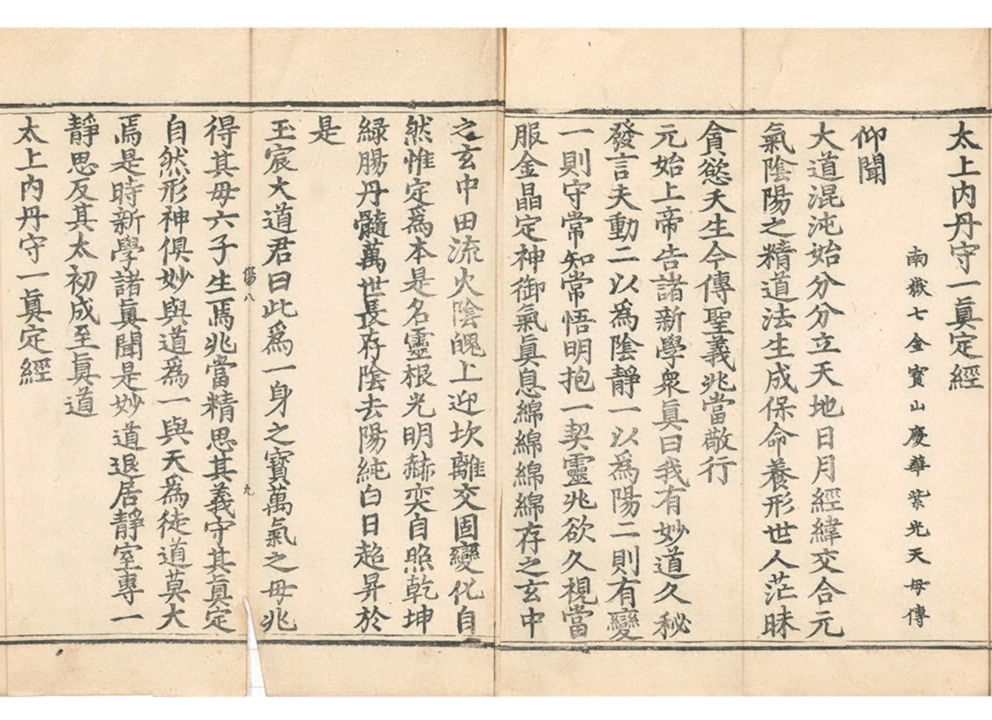 太上內丹守一眞定經
南嶽七金寳山慶華紫光天母傳
仰聞
大道混沌始分分立天地日月經緯交合元
氣陰陽之精道法生成保命養形世人茫昧
貪慾天生今傳聖義兆當敬行
元始上帝告諸新學衆眞曰我有妙道久秘
發言夫動二以爲陰靜一以爲陽二則有變
一則守常知常悟明抱一契靈兆欲久視當
服金晶定神御氣眞息綿綿綿綿存之玄中
之玄中田流火陰魄上迎坎離交固變化自
然惟定爲本是名靈根光明赫奕自照乾坤
綠腸丹髓萬世長存陰去陽純白日超昇於
是
玉宸大道君曰此爲一身之寶萬氣之母兆
傷八
九
得其母六子生焉兆當精思其義守其眞定
自然形神俱妙與道爲一與天爲徒道莫大
焉是時新學諸眞聞是妙道退居靜室專一
靜思反其太初成至眞道
太上內丹守一眞定經